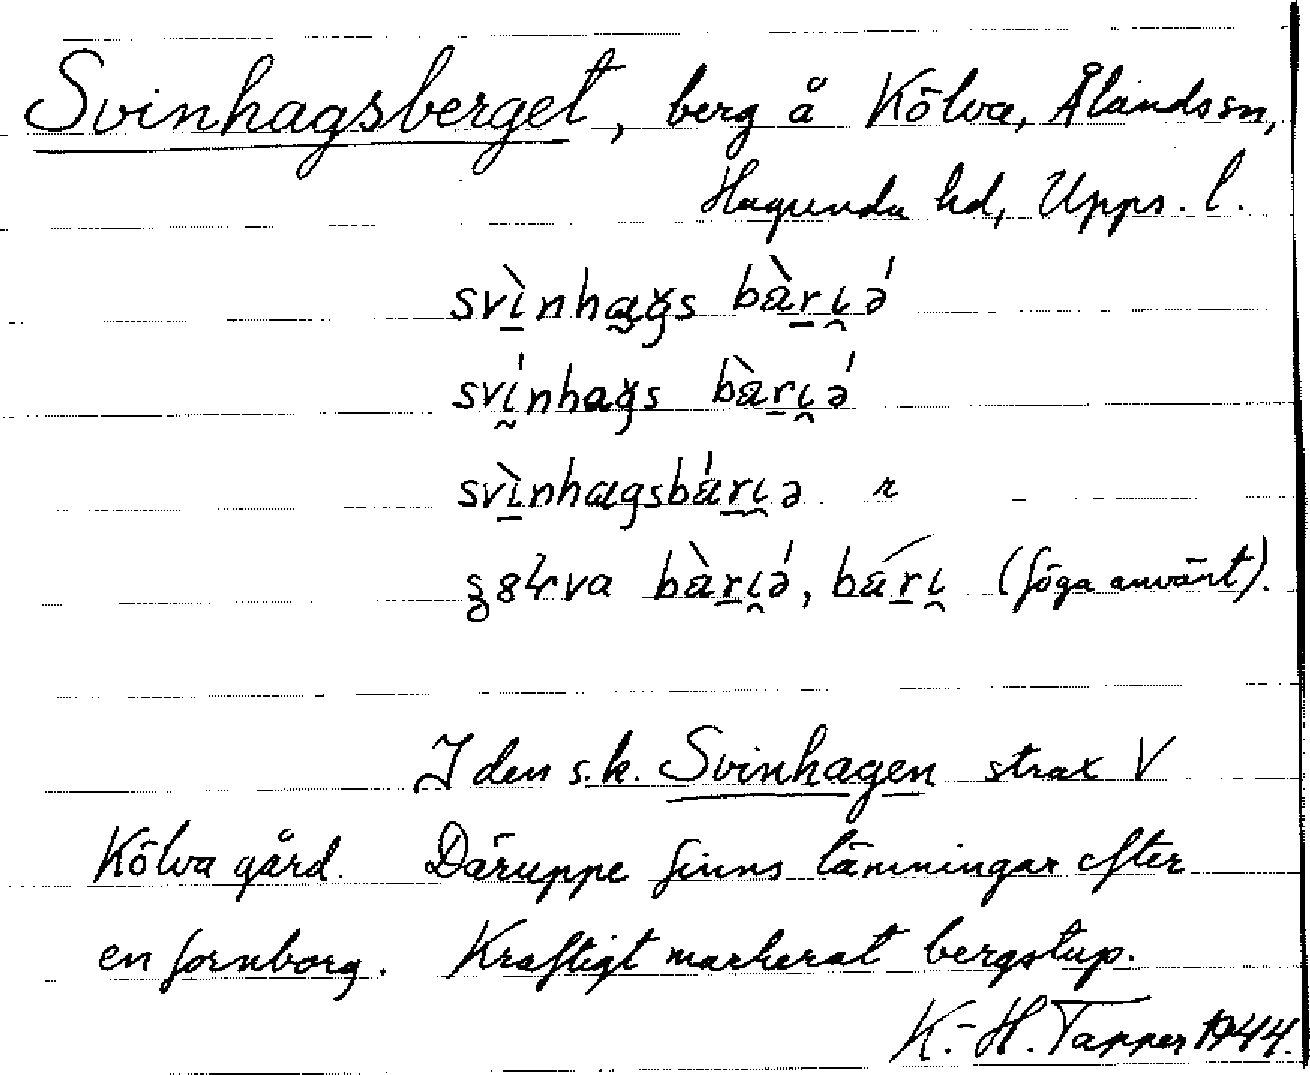 Svinhagsberget, berg å Kölva, Ålands sn,
Hagunda hd, Upps. l.
svìnhags bàrɩə́
svínhags bàrɩə́
svìnhagsbárɩə r
bàrɩə́, bárɩ (föga använt).
I den s.k. Svinhagen strax V
Kölva gård. Däruppe finns lämningar efter
en fornborg. Kraftigt markerat bergstup.
K.-H. Tapper 1944.